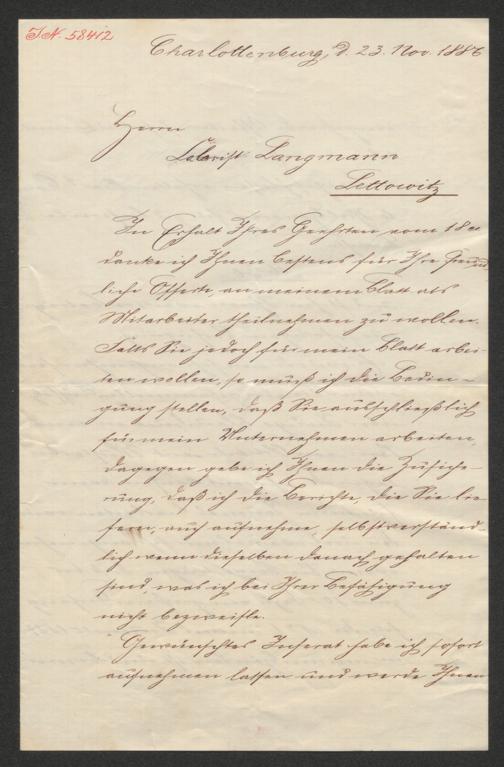 I.N. 58412
Charlottenburg, d. 23. Nov. 1886
Herrn
Langmann
Lettowitz
In Erhalt Ihres Geehrten vom 18 ct
danke ich Ihnen bestens für Ihre freund
liche Offerte an meinem Blatt als
Mitarbeiter theilnehmen zu wollen.
Falls Sie jedoch für mein Blatt arbei-
ten wollen, so muß ich die Bedin-
gung stellen, daß Sie ausschließlich
für mein Unternehmen arbeiten,
dagegen gebe ich Ihnen die Zusiche-
rung, daß ich die Berichte, die Sie lie
fern, auch aufnehme, selbstverständ-
lich wenn dieselben danach gehalten
sind, was ich bei Ihrer Befähigung
nicht bezweifle.
Gewünschtes Inserat habe ich sofort
aufnehmen lassen und werde Ihnen